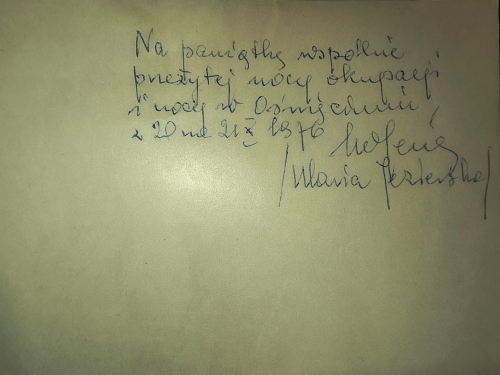 Na pamiątkę wspólnie
przeżytej nocy okupacji
i nocy w Oświęcimiu
z 20 na 21 X 1976
/Maria Jezierska/